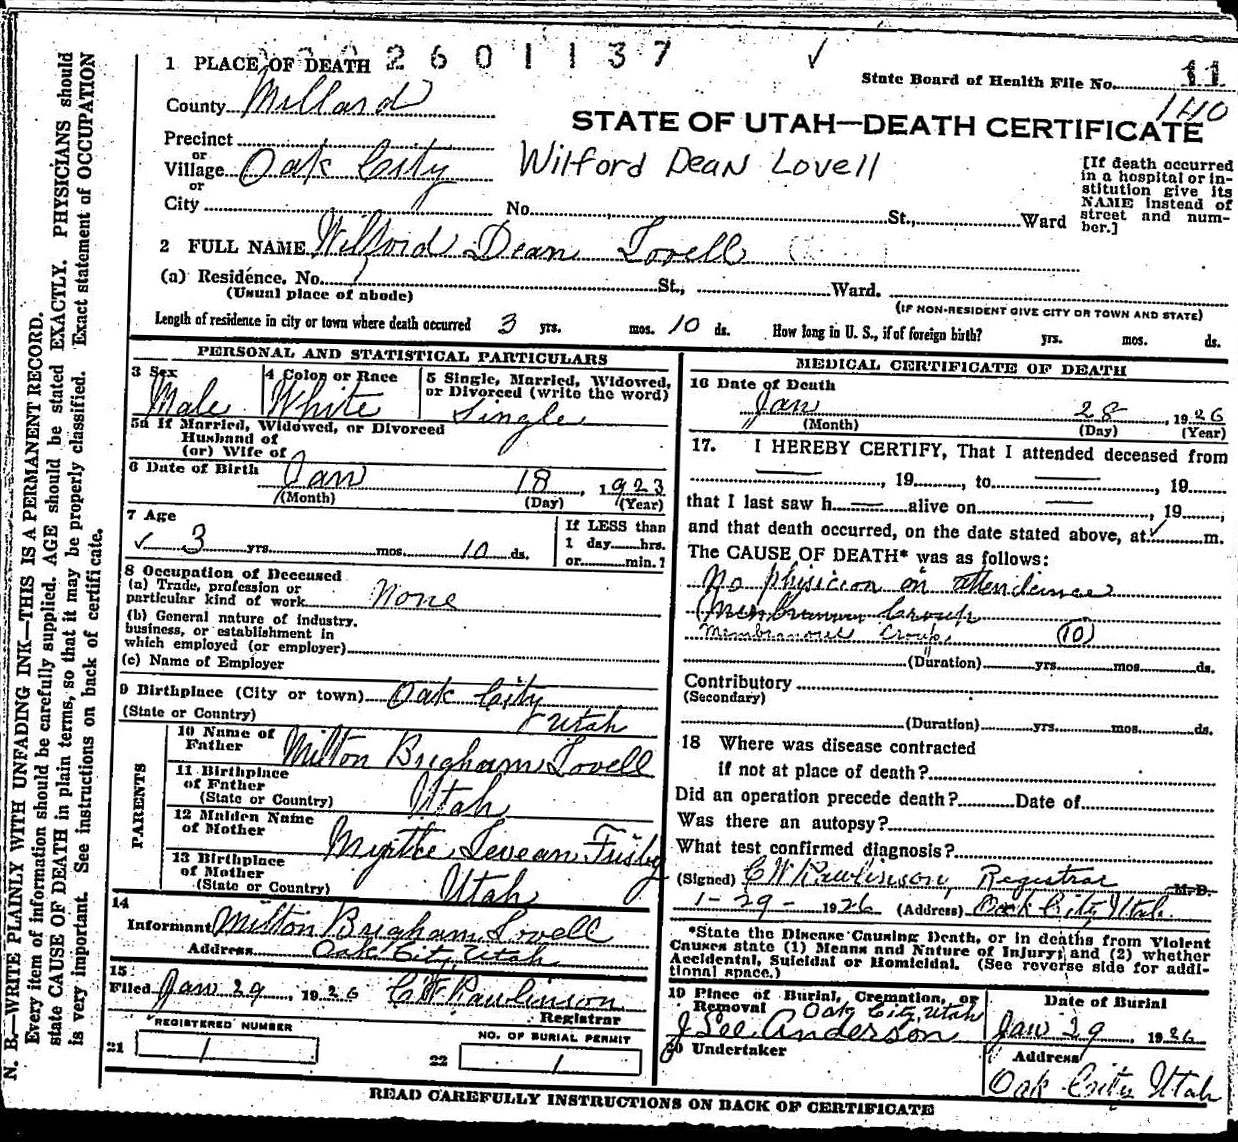 2601137
1 PLACE OF DEATH
State Board of Health File No.
140
County Millard
STATE OF UTAH—DEATH CERTIFICATE
Precinct
or
Village Oak City
Wilford Dean Lovell
[If death occurred
in a hospital or in-
stitution give its
NAME instead of
street and num-
ber.]
or
City No. St., Ward
2 FULL NAME Wilford Dean Lovell
(a) Residence, No. St., Ward.
(Usual place of abode) (IF NON-RESIDENT GIVE CITY OR TOWN AND STATE)
Length of residence in city or town where death occurred 3 yrs. mos. 10 ds. How long in U. S., if of foreign birth? yrs. mos. ds.
PERSONAL AND STATISTICAL PARTICULARS
3 Sex
Male
4 Color or Race
White
5 Single, Married, Widowed,
or Divorced (write the word)
Single
5a If Married, Widowed, or Divorced
Husband of
(or) Wife of
6 Date of Birth Jan 18, 1923
(Month) (Day) (Year)
7 Age
✓ 3 yrs. mos. 10 ds.
If LESS than
1 day hrs.
or min.?
8 Occupation of Deceased
(a) Trade, profession or
particular kind of work None
(b) General nature of industry.
business, or establishment in
which employed (or employer)
(c) Name of Employer
9 Birthplace (City or town) Oak City
(State or Country) Utah
PARENTS
10 Name of
Father Milton Brigham Lovell
11 Birthplace
of Father
(State or Country) Utah
12 Maiden Name
of Mother Myrtle Levean Frisby
13 Birthplace
of Mother
(State or Country) Utah
14
Informant Milton Brigham Lovell
Address Oak City, Utah
15
Filed Jan 29, 1926 C W Rawlinson
Registrar
REGISTERED NUMBER
21 1
NO. OF BURIAL PERMIT
22 1
MEDICAL CERTIFICATE OF DEATH
16 Date of Death
Jan 28, 1926
(Month) (Day) (Year)
17. I HEREBY CERTIFY, That I attended deceased from
—, 19, to —, 19
that I last saw h — alive on —, 19,
and that death occurred, on the date stated above, at ✓ m.
The CAUSE OF DEATH* was as follows:
No phisicion on attendence
Croup
Membranous Croup. (10)
(Duration) yrs mos. ds.
Contributory
(Secondary)
(Duration) yrs. mos. ds.
18 Where was disease contracted
if not at place of death?
Did an operation precede death? Date of
Was there an autopsy?
What test confirmed diagnosis?
(Signed) C W Rawlinson, Registrar M. D.
1-29-1926 (Address) Oak City, Utah.
*State the Disease Causing Death, or in deaths from Violent
Causes state (1) Means and Nature of Injury; and (2) whether
Accidental, Suicidal or Homicidal. (See reverse side for addi-
tional space.)
19 Place of Burial, Cremation, or
Removal Oak City, Utah
Date of Burial
Jan 29 1926
J Lee Anderson
20 Undertaker
Address
Oak City Utah
READ CAREFULLY INSTRUCTIONS ON BACK OF CERTIFICATE
N. B.—WRITE PLAINLY WITH UNFADING INK—THIS IS A PERMANENT RECORD.
Every item of information should be carefully supplied. AGE should be stated EXACTLY. PHYSICIANS should
state CAUSE OF DEATH in plain terms, so that it may be properly classified. Exact statement of OCCUPATION
is very important. See instructions on back of certificate.